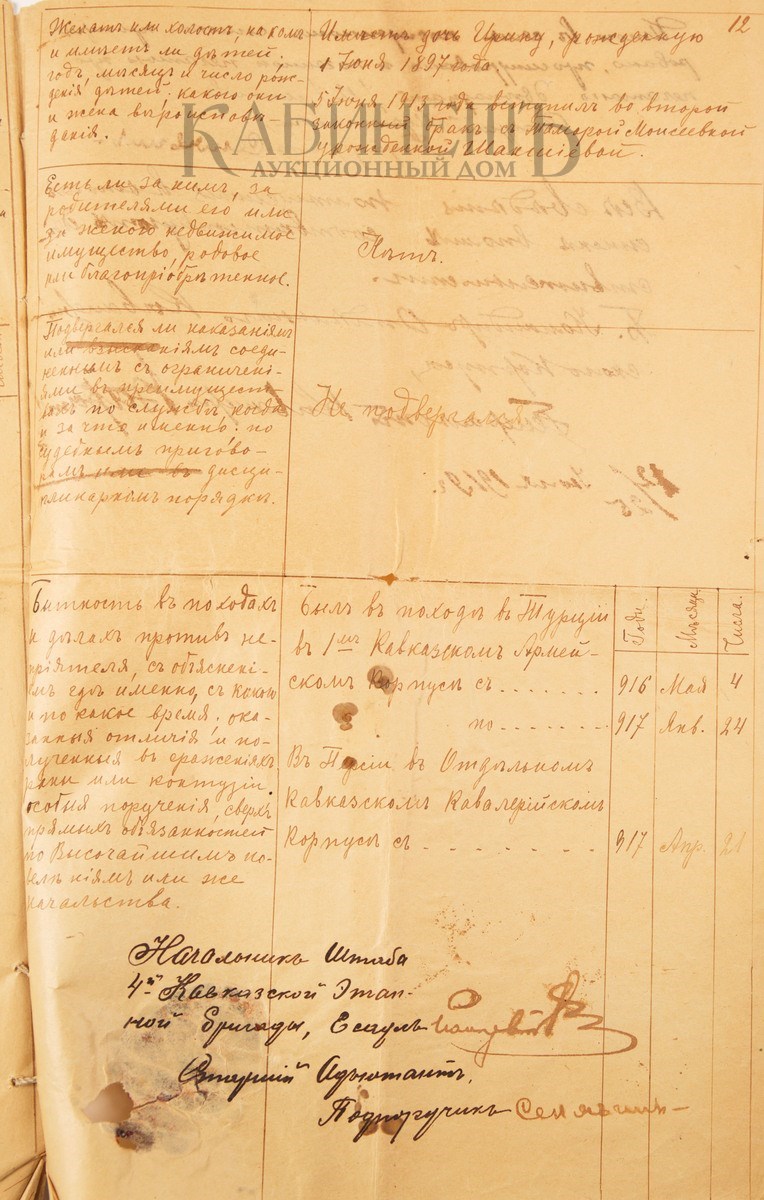 12
Женатъ или холостъ, на комъ
и имѣетъ ли дѣтей
годъ, мѣсяцъ и число рож-
денія дѣтей. какого они
и жена вѣроисповѣ-
данія.
Имѣетъ дочь Ирину, рожденную
1 Юня 1897 года
5 Юня 1913 года вступилъ во второй
законный бракъ съ Тамарой Моисеевной
урожденной
КАБИНЕТЪ
АУКЦИОННЫЙ ДОМ
Есть ли за нимъ, за
родителями его или
за женою недвижимое
имущество, родовое
или благопріобрѣтенное.
Нѣтъ.
Подвергался ли наказаніямъ
или взысканіямъ соеди-
неннымъ съ ограничені-
ями въ преимущест-
вахъ по службѣ когда
и за что именно: по
судебнымъ пригово-
рамъ или въ дисци-
плинарномъ порядкѣ.
Не подвергался
Бытность въ походахъ
и дѣлахъ противъ не-
пріятеля, съ объяснені-
емъ гдѣ именно, съ какого
и по какое время. ока-
занныя отличія и по-
лученныя въ сраженіяхъ
раны или контузіи.
особыя порученія, сверхъ
прямыхъ обязанностей
по Высочайшимъ по-
велѣніямъ или же
начальства.
Былъ въ походѣ въ Турціи
въ 1мъ Кавказскомъ Армей-
скомъ Корпусѣ съ . . . . . . .
по . . . . . . .
Въ Персіи въ Отдѣльномъ
Кавказскомъ Кавалерійскомъ
Корпусѣ съ . . . . . . . .
Годы. Мѣсяцы. Числа.
916 Май 4
917 Янв. 24
917 Апр. 21
Начальникъ Штаба
4й Кавказской Этап-
ной бригады, Есаулъ
Старшій Адъютантъ,
Подпоручикъ